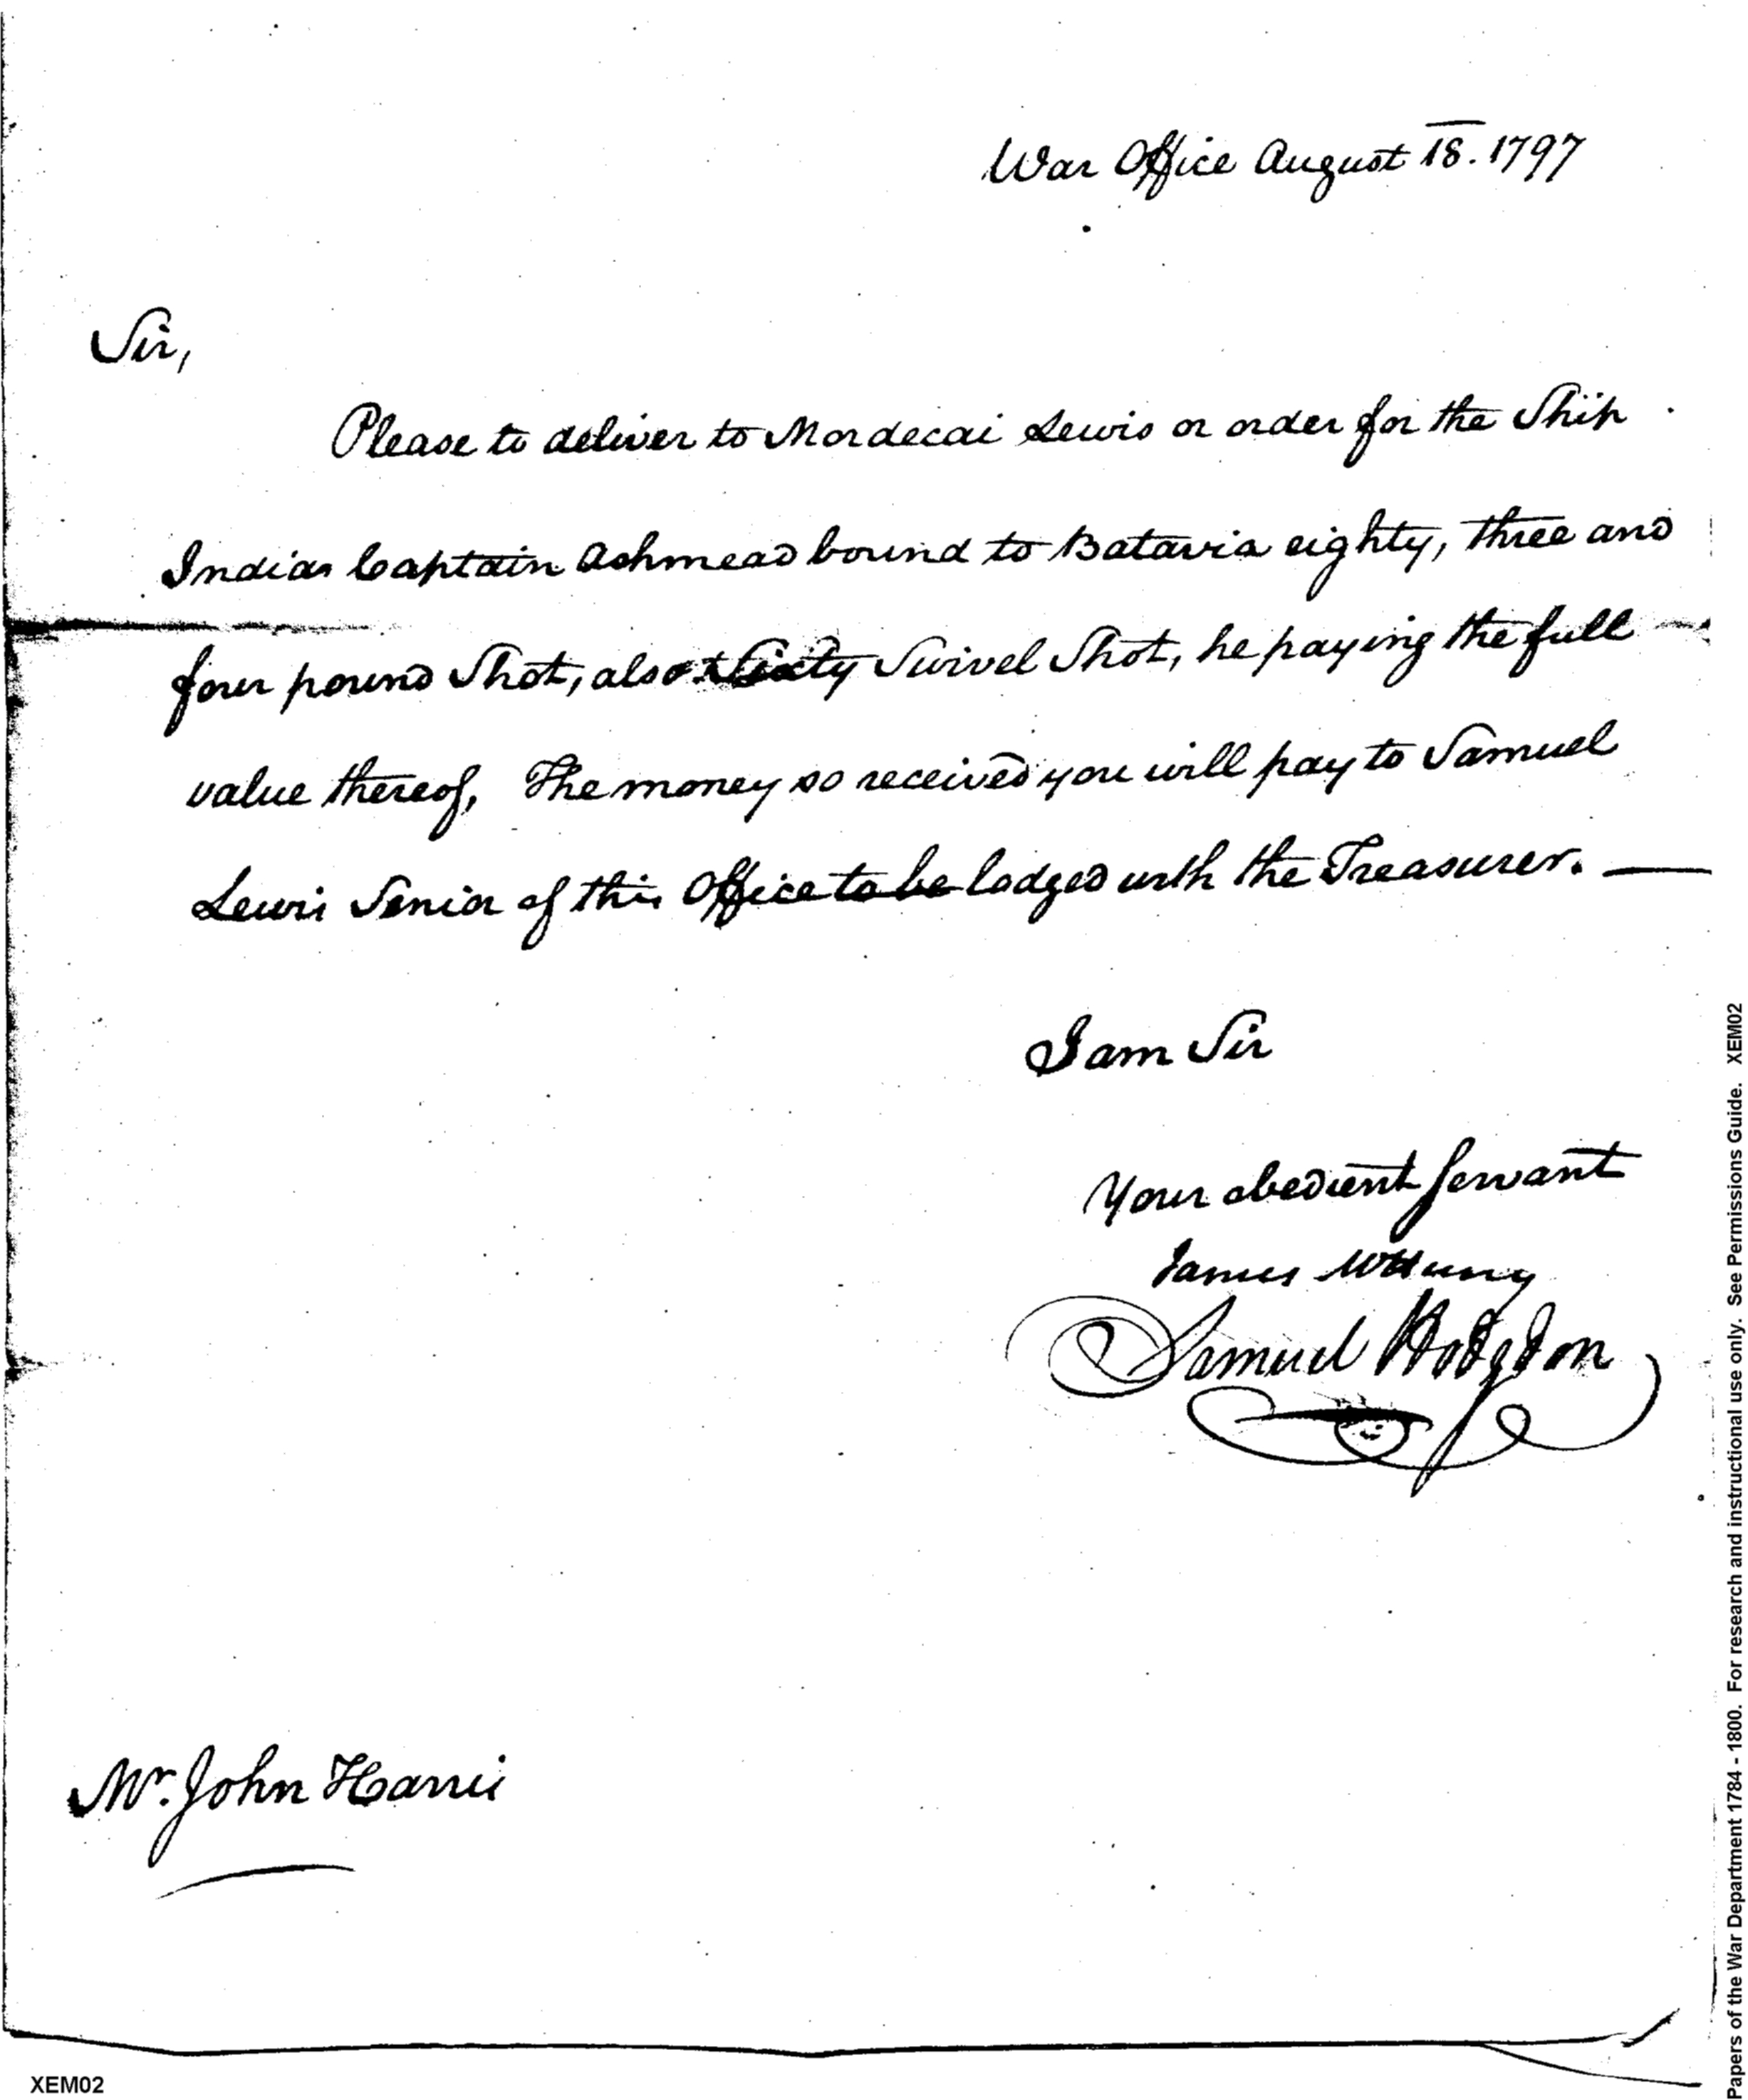 War Office August 18. 1797
Sir,
Please to deliver to Mordecai Lewis or order for the Ship
India Captain Ashmead bound to Batavia eighty, three and
four pound Shot, also Sixty Swivel Shot, he paying the full
value thereof, The money so received you will pay to Samuel
Lewis Senior of this Office to be lodged with the Treasurer. —
I am Sir
Your obedient Servant
James McHenry
Samuel Hodgdon
Mr. John Harris
XEM02
Papers of the War Department 1784 - 1800. For research and instructional use only. See Permissions Guide. XEM02